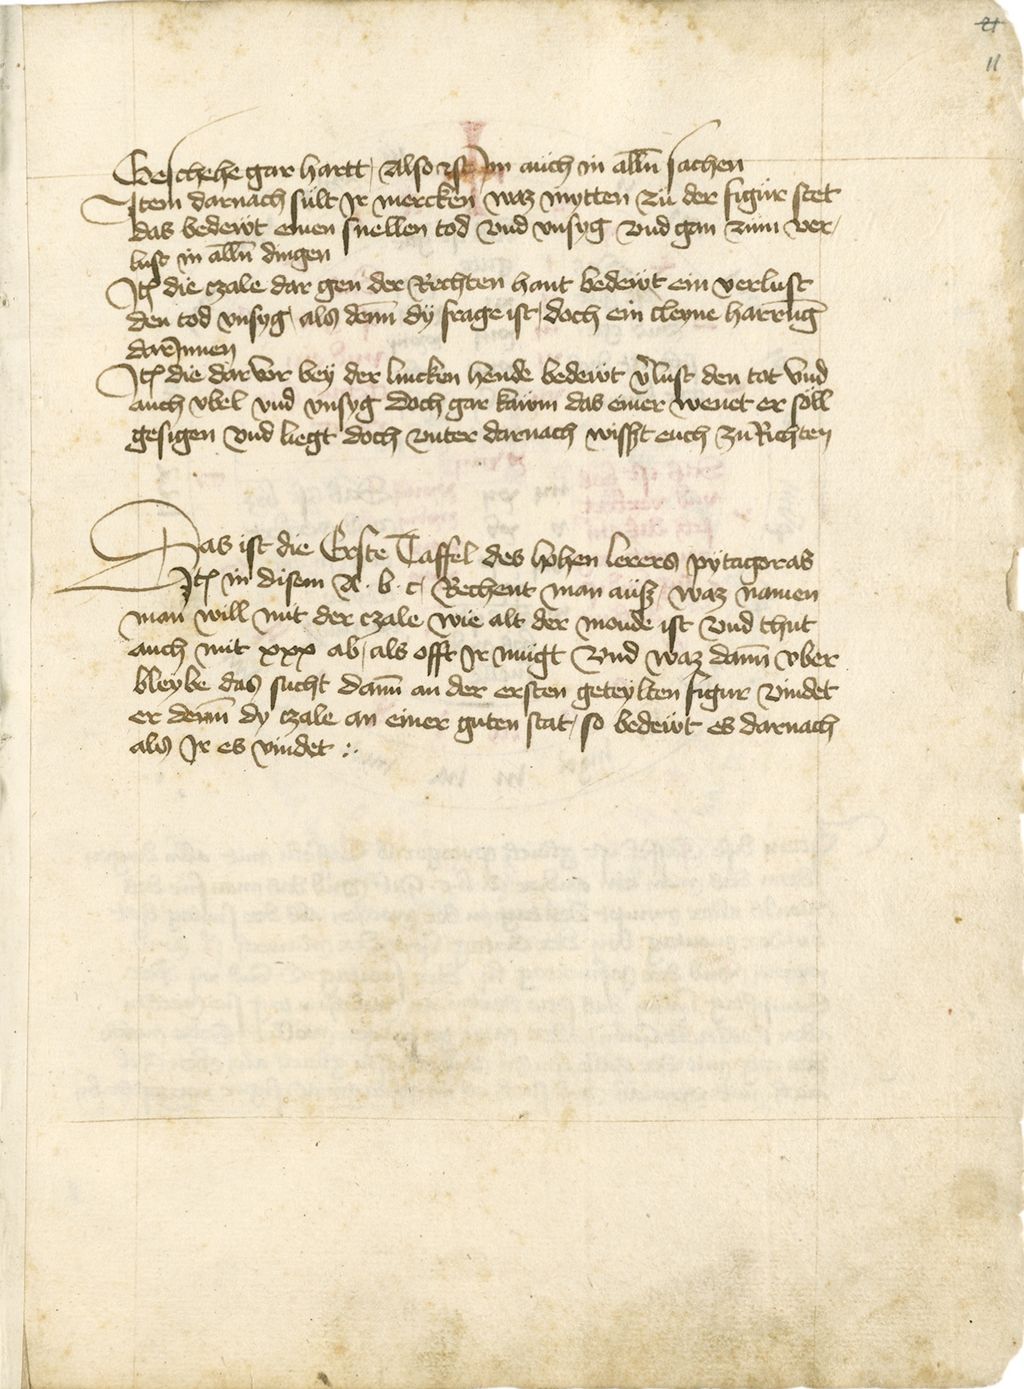 21
11
Geschehe gar hartt, Also ist im auch in alln̄ sachen
Item darnach sült Jr mercken waz mytten zu der figur stet
das bedewt einen snellen tod vnd vnsyg vnd gan zum ver-
lust in alln̄ dingen
Jtē die czale dar gen der Rechten hant bedewt ein verlust
den tod vnsyg, als denn̄ dÿ frage ist, doch ein cleyne harrūg
darJnnen
Jtē die dar vor bey der lincken hende bedewt v̄lust den tot vnd
auch vbel vnd vnsyg doch gar kawm das einer wenet er söll
gesigen vnd liegt doch vnter darnach wisszt euch zu Richten
Das ist die Erste Taffel des hohen lerers pytagoras
Jtē in disem A . b . c, Rechent man aüsz, waz namen
man will mit der czale wie alt der monde ist vnd thut
auch mit xxx ab, als offt Jr mügt vnd waz dann̄ vber
bleybe das sucht dann̄ an der ersten geteylten figur vindet
er denn̄ dy czale an einer guten stat, so bedewt es darnach
als Jr es vindet :.